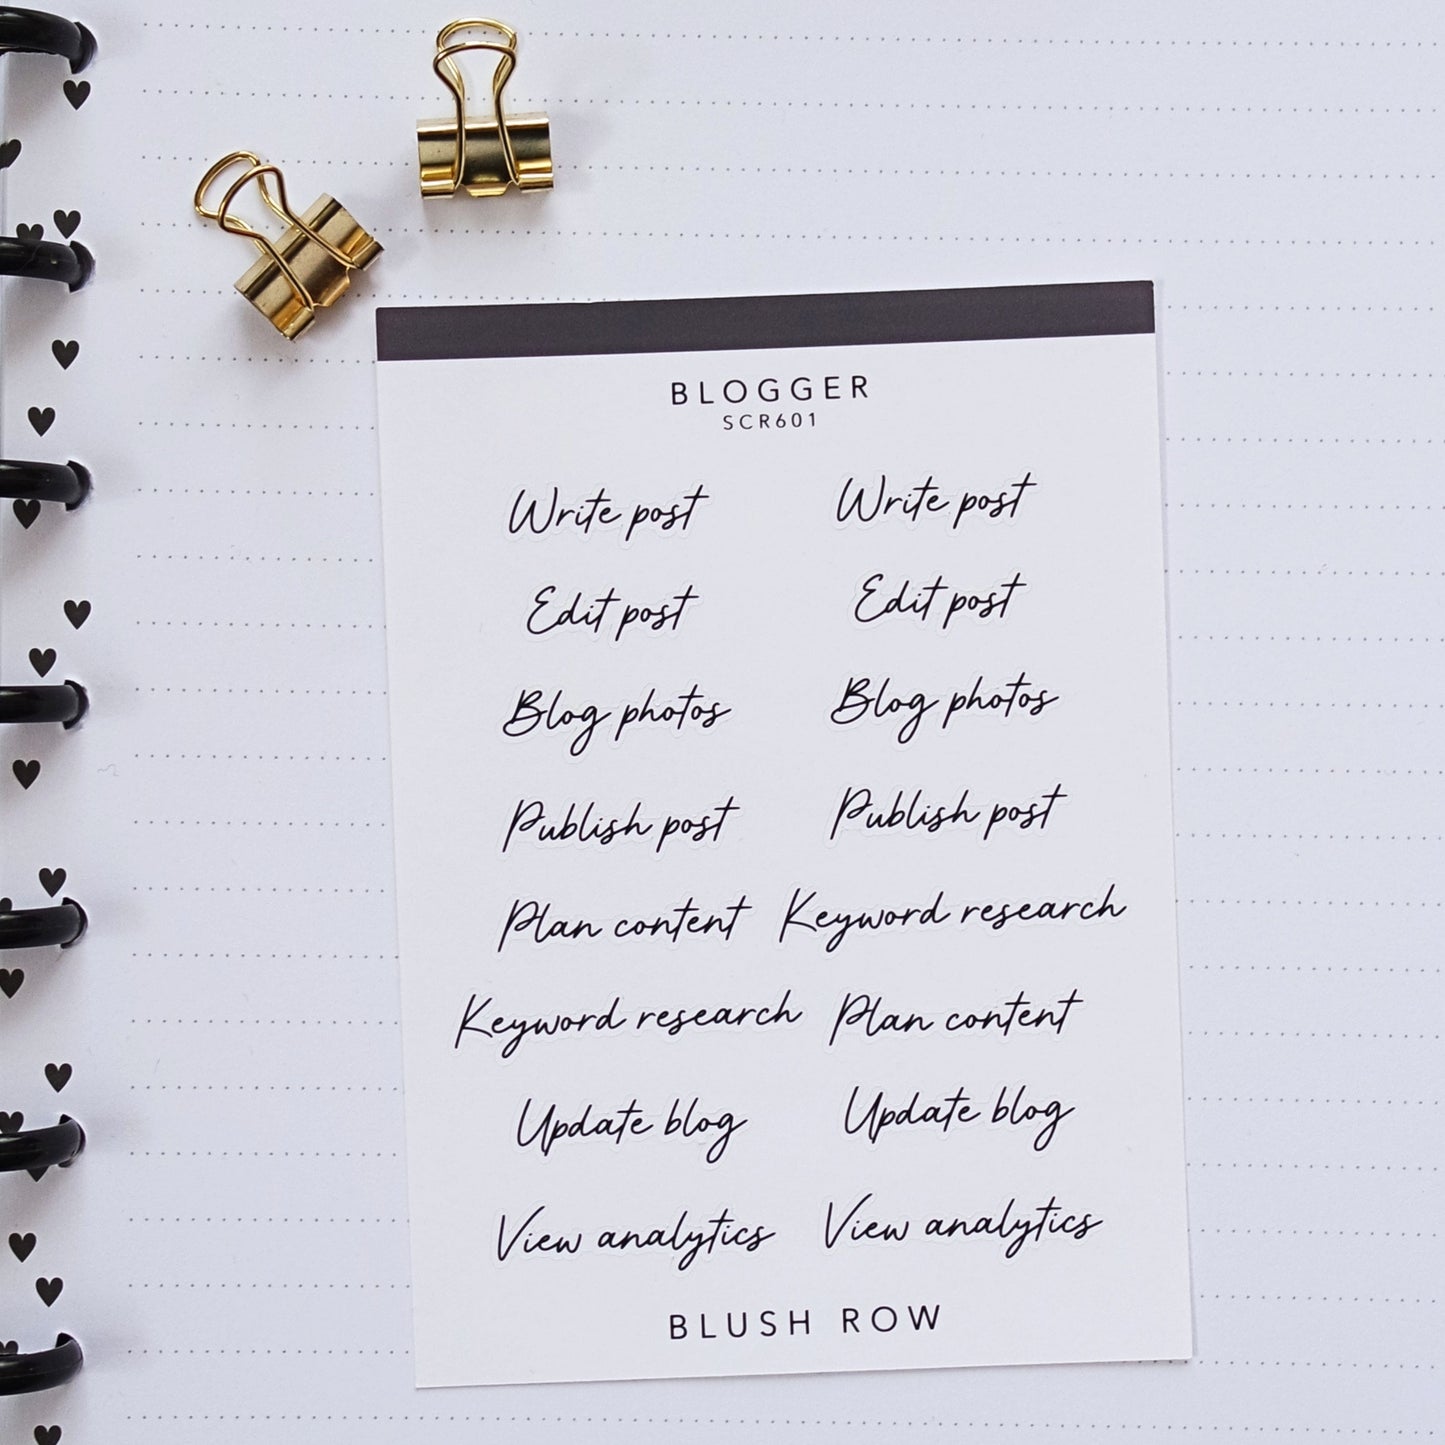 BLOGGER
SCR601
Write post Write post
Edit post Edit post
Blog photos Blog photos
Publish post Publish post
Plan content Keyword research
Keyword research Plan content
Update blog Update blog
View analytics View analytics
BLUSH ROW